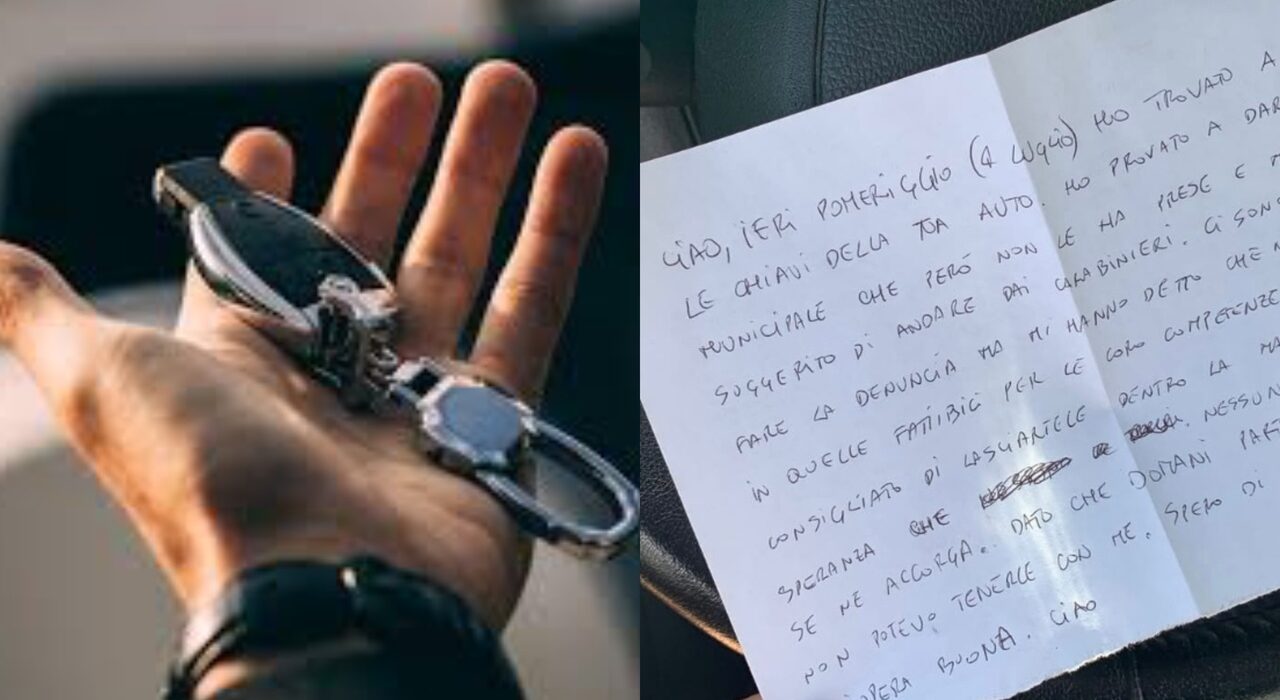 CIAO, IERI POMERIGGIO (4 LUGLIO) HO TROVATO A
LE CHIAVI DELLA TUA AUTO. HO PROVATO A DAR
MUNICIPALE CHE PERÓ NON LE HA PRESE E M
SUGGERITO DI ANDARE DAI CARABINIERI. CI SONO
FARE LA DENUNCIA MA MI HANNO DETTO CHE N
IN QUELLE FATTIBILI PER LE LORO COMPETENZE
CONSIGLIATO DI LASCIARTELE DENTRO LA MA
SPERANZA CHE NESSUN
SE NE ACCORGA. DATO CHE DOMANI PART
NON POTEVO TENERLE CON ME. SPERO DI
OPERA BUONA. CIAO